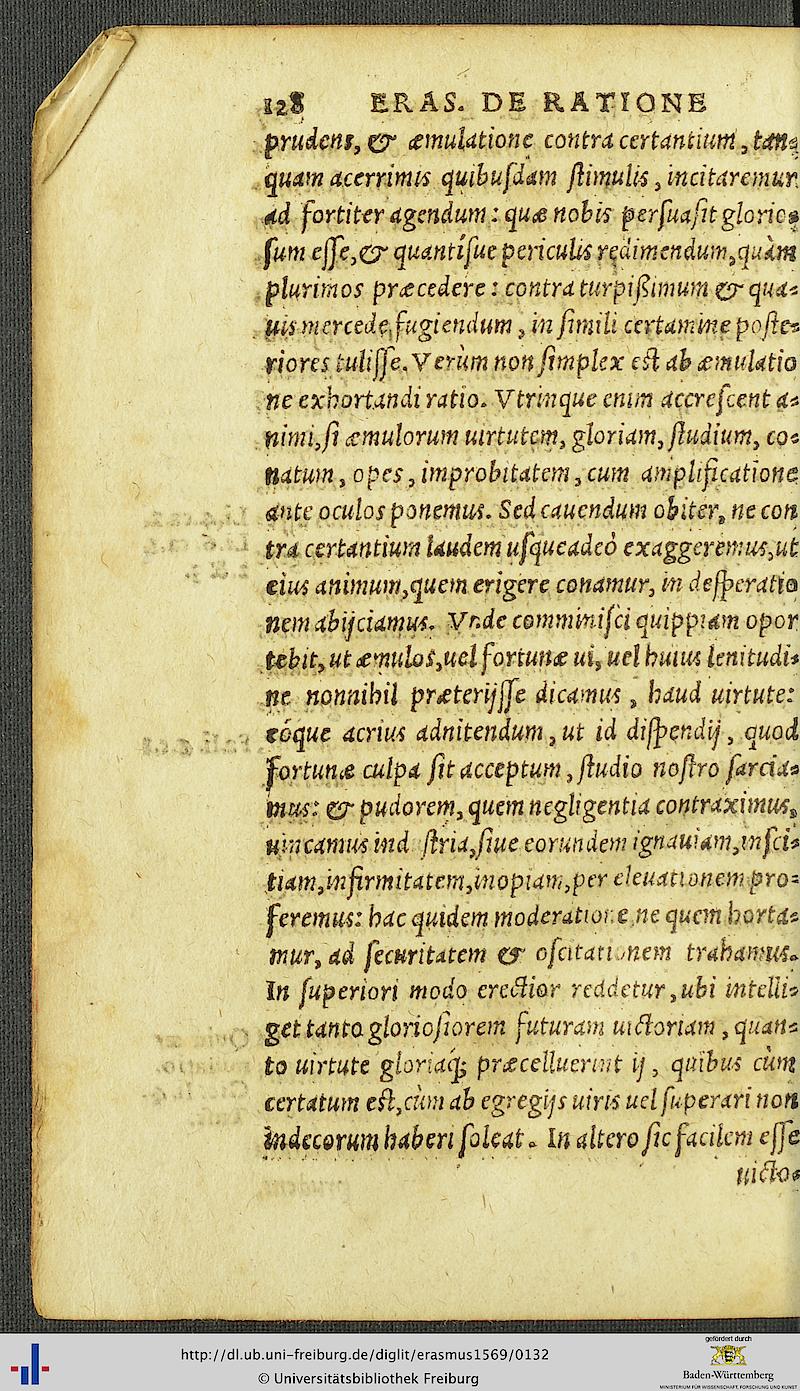 128 ERAS. DE RATIONE
prudens, & æmulatione contra certantium, tan=
quam acerrimis quibusdam stimulis, incitaremur
ad fortiter agendum: quæ nobis persuasit glorio=
sum esse, & quantísue periculis redimendum, quàm
plurimos præcedere: contra turpißimum & qua=
uis mercede fugiendum, in simili certamine poste=
riores tulisse. Verùm non simplex est ab æmulatio
ne exhortandi ratio. Vtrinque enim accrescent a=
nimi, si æmulorum uirtutem, gloriam, studium, co=
natum, opes, improbitatem, cum amplificatione
ante oculos ponemus. Sed cauendum obiter, ne con
tra certantium laudem usqueadeò exaggeremus, ut
eius animum, quem erigere conamur, in desperatio
nem abijciamus. Vnde comminisci quippiam opor
tebit, ut æmulos, uel fortunæ ui, uel huius lenitudi=
ne nonnihil præterijsse dicamus, haud uirtute:
eóque acrius adnitendum, ut id dispendij, quod
fortunæ culpa sit acceptum, studio nostro sarcia=
mus: & pudorem, quem negligentia contraximus,
uincamus ind stria, siue eorundem ignauiam, insci=
tiam, infirmitatem, inopiam, per eleuationem pro=
feremus: hac quidem moderatione, ne quem horta=
mur, ad securitatem & oscitationem trahamus.
In superiori modo erectior reddetur, ubi intelli=
get tanto gloriosiorem futuram uictoriam, quan=
to uirtute gloriaq́; præcelluerint ij, quibus cùm
certatum est, cùm ab egregijs uiris uel superari non
indecorum haberi soleat. In altero sic facilem esse
uicto=
http://dl.ub.uni-freiburg.de/diglit/erasmus1569/0132
© Universitätsbibliothek Freiburg
gefördert durch
Baden-Württemberg
MINISTERIUM FÜR WISSENSCHAFT, FORSCHUNG UND KUNST